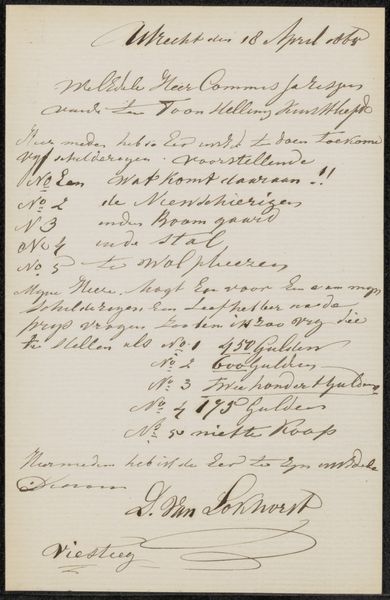 Utrecht den 18 April 1868
WelEdele Heer Commissarissen
van de ten Toon Stelling Kunstliefde
Hier mede heb ik Eer UwEd te doen toekome
vyf schilderyen. voorstellende
No Een wat komt daar aan!!
No 2 de Nieuwschierigen
N 3 in den Boom gaard
No 4 in de Stal
No 5 te Wolpheeren
Myne Heere. mogt Een voor Een van myn
schilderyen Een Liefhebber na de
prys vragen zoo ben ik zoo vry die
te stellen als No 1 450 Gulden
No 2 600 Gulden
No 3 Twe honderd Gulden
No 4 175 Gulden
No 5 niet te Koop
Hiermeden heb ik de Eer te zyn UwEdele
Dienaar
D. van Lokhorst